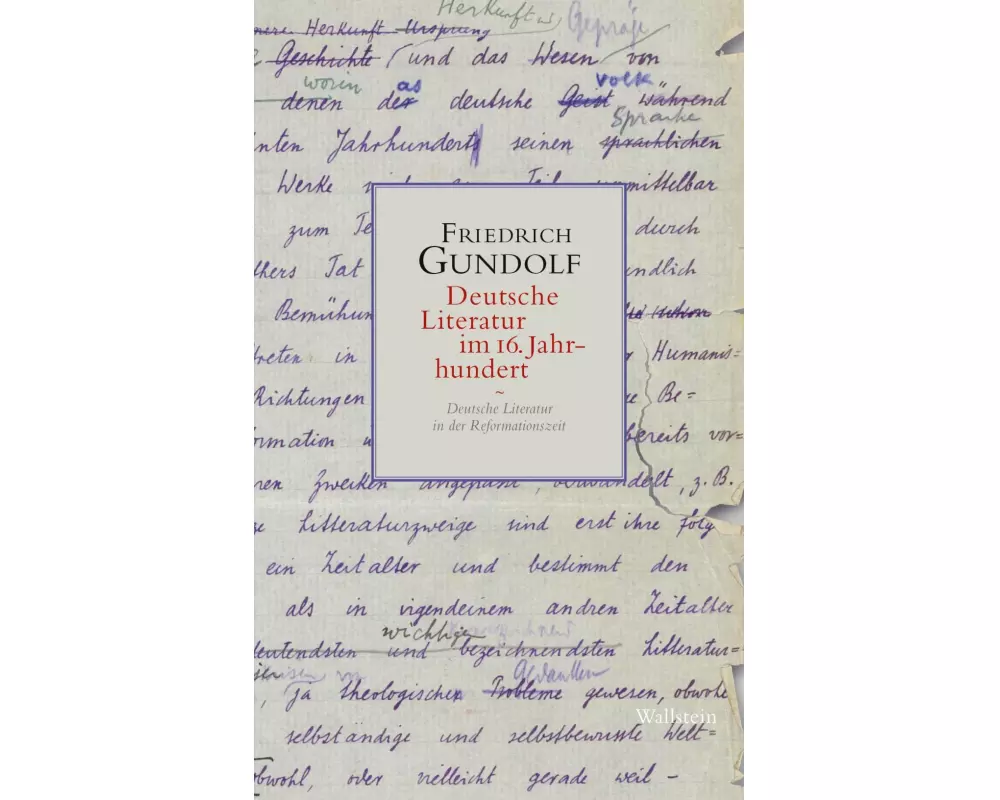 Herkunft u. Gepräge
nere Herkunft Ursprung
Geschichte und das Wesen von
worin as volk
denen der deutsche Geist während
Sprache
nten Jahrhunderts seinen sprachlichen
Werke Teil mittelbar
zum Te durch
thers Tat ndlich
Bemühun
treten in Humanis=
Richtungen Be=
rmation bereits vor=
ren Zwecken angepasst, verwandelt, z. B.
Litteraturzweige sind erst ihre folg
ein Zeitalter und bestimmt den
als in irgendeinem andren Zeitalter
wichtige
deutendsten und bezeichnendsten Litteratur=
von Gedanken
, ja theologischen Probleme gewesen, obwohl
selbständige und selbstbewusste Welt=
obwohl, oder vielleicht gerade weil –
FRIEDRICH
GUNDOLF
Deutsche
Literatur
im 16. Jahr-
hundert
~
Deutsche Literatur
in der Reformationszeit
Wallstein